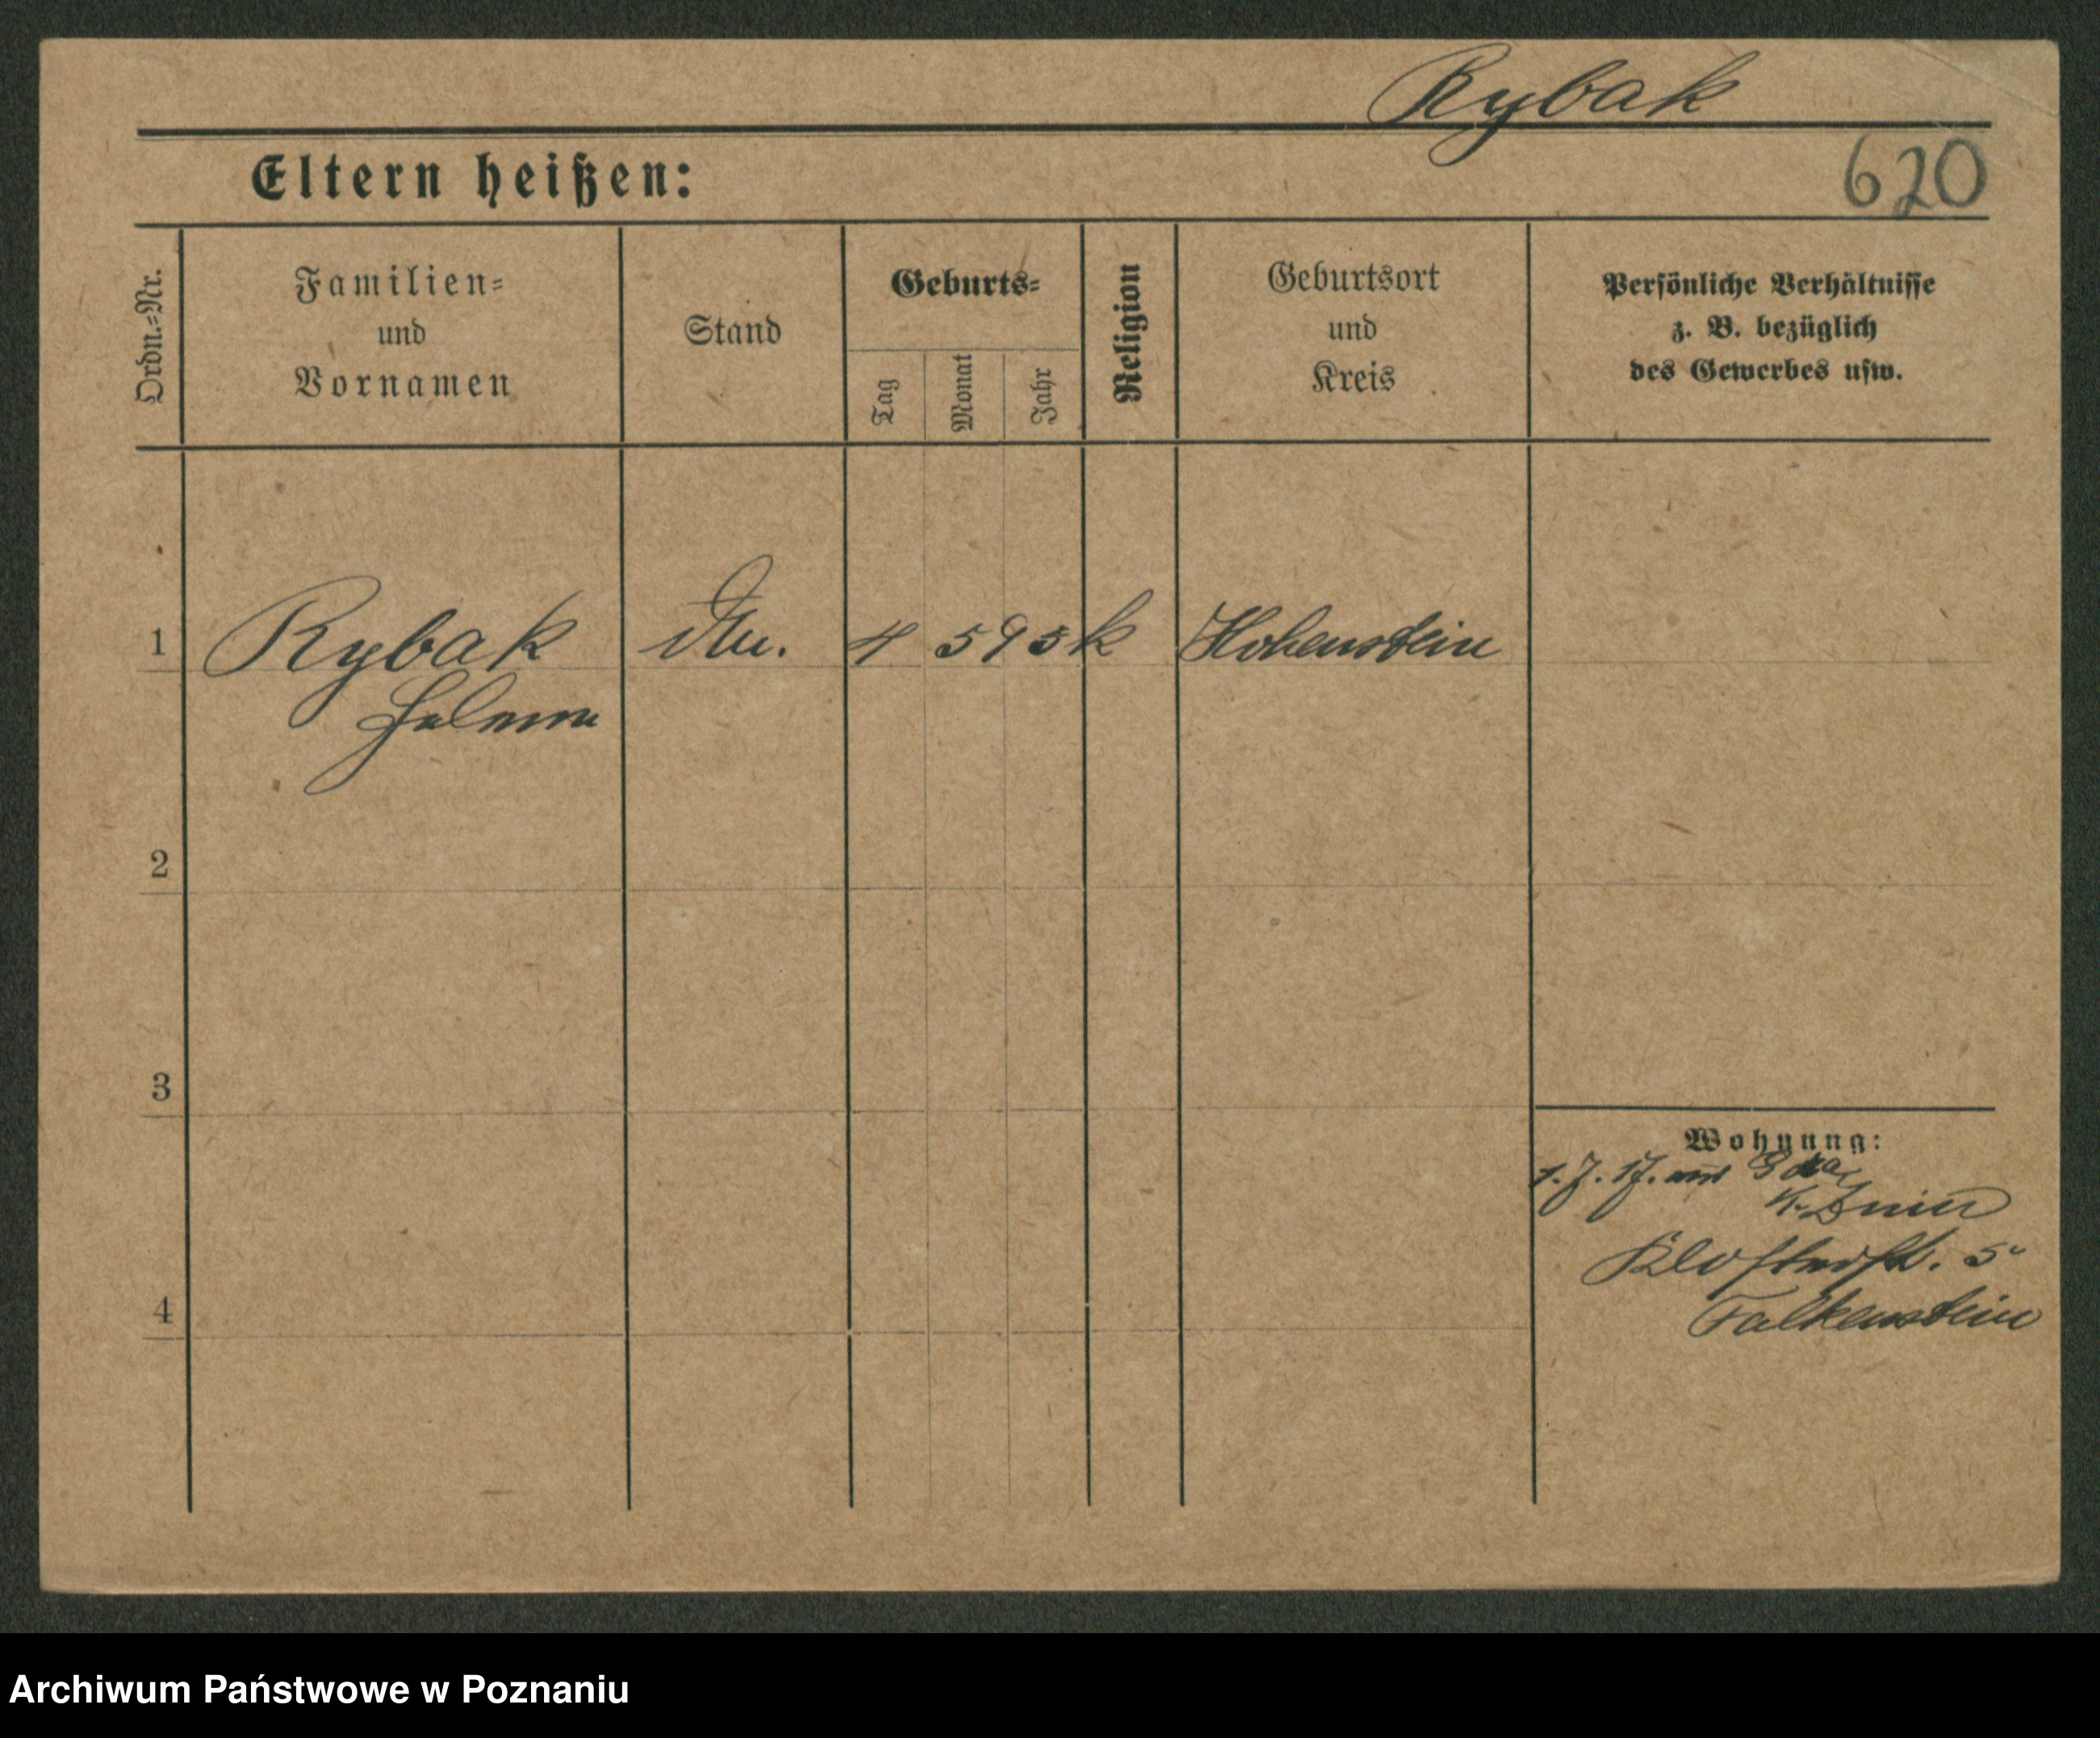 Rybak
Eltern heißen:
620
Ordn.-Nr.
Familien-
und
Vornamen
Stand
Geburts-
Tag
Monat
Jahr
Religion
Geburtsort
und
Kreis
Persönliche Verhältnisse
z. B. bezüglich
des Gewerbes usw.
1 Rybak 4 5 95 k Hohenstein
Helene
2
3
Wohnung:
1. 7. 17. aus
K.
Klosterstr. 5
4
Falkenstein
Archiwum Państwowe w Poznaniu